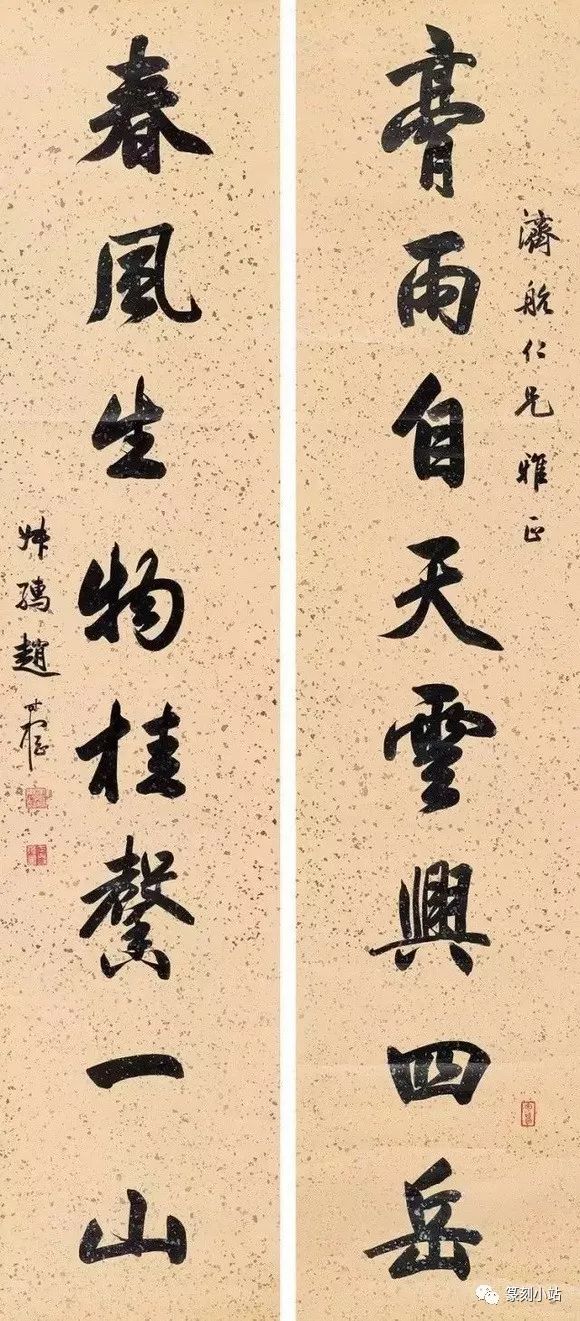 濟航仁兄雅正
膏雨自天雲興四岳
春風生物桂馨一山
叔孺趙時棡
篆刻小站